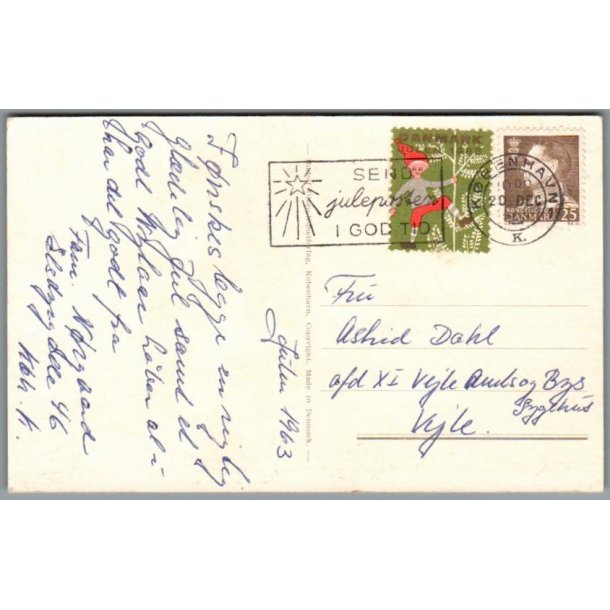 I ønskes begge en rigtig
glædelig Jul samt et
Godt Nytaar haaber at i
har det godt fra
Fam. Nørgaard
46
Kbh. K.
Julen 1963
DANMARK
SEND
juleposten
I GOD TID
KØBENHAVN
20. DEC
K.
DANMARK 25
København. Copyright. Made in Denmark
Fru
Astrid Dahl
afd XI Vejle Amts og Bys
Sygehus
Vejle.